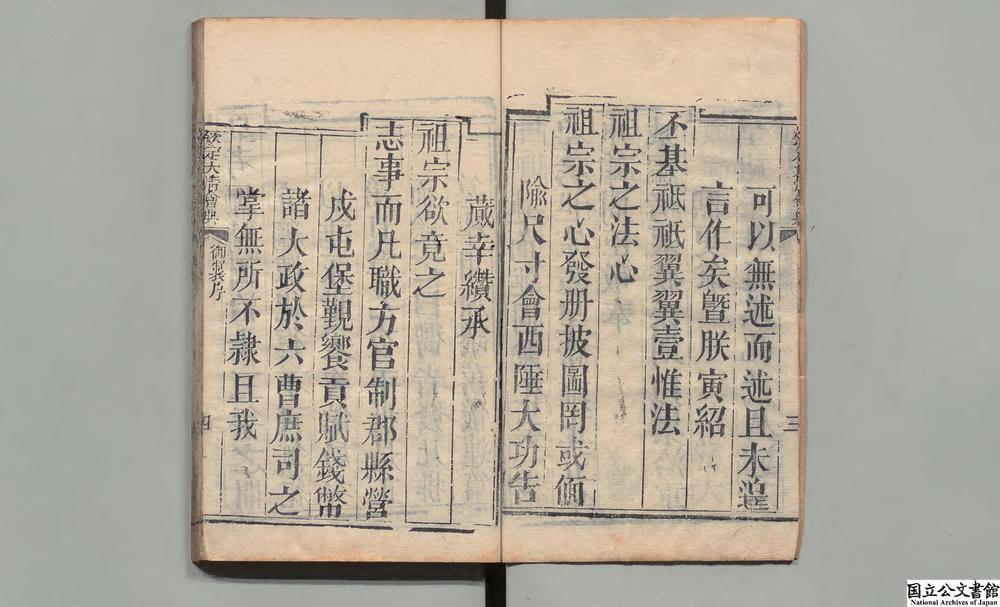 可以無述而述且未遑
言作矣暨朕寅紹
丕基祇祇翼翼壹惟法
祖宗之法心
祖宗之心發册披圖罔或偭
隃尺寸會西陲大功告
三
蕆幸纘承
祖宗欲竟之
志事而凡職方官制郡縣營
戍屯堡覲饗貢賦錢幣
諸大政於六曹庶司之
掌無所不隷且我
欽定大清會典
御製序
四
国立公文書館
National Archives of Japan